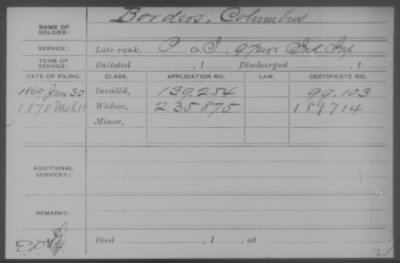 NAME OF SOLDIER: Borders, Columbus
SERVICE: Late rank, P Co. I, 97 Reg't Ind Inf
TERM OF SERVICE: Enlisted , 1 Discharged , 1
DATE OF FILING. CLASS. APPLICATION NO. LAW. CERTIFICATE NO.
Jan 30 Invalid, 139.254 99.103
1878 Mch 11 Widow, 235.875 189714
Minor,
ADDITIONAL SERVICES:
REMARKS:
Died , 1 , at